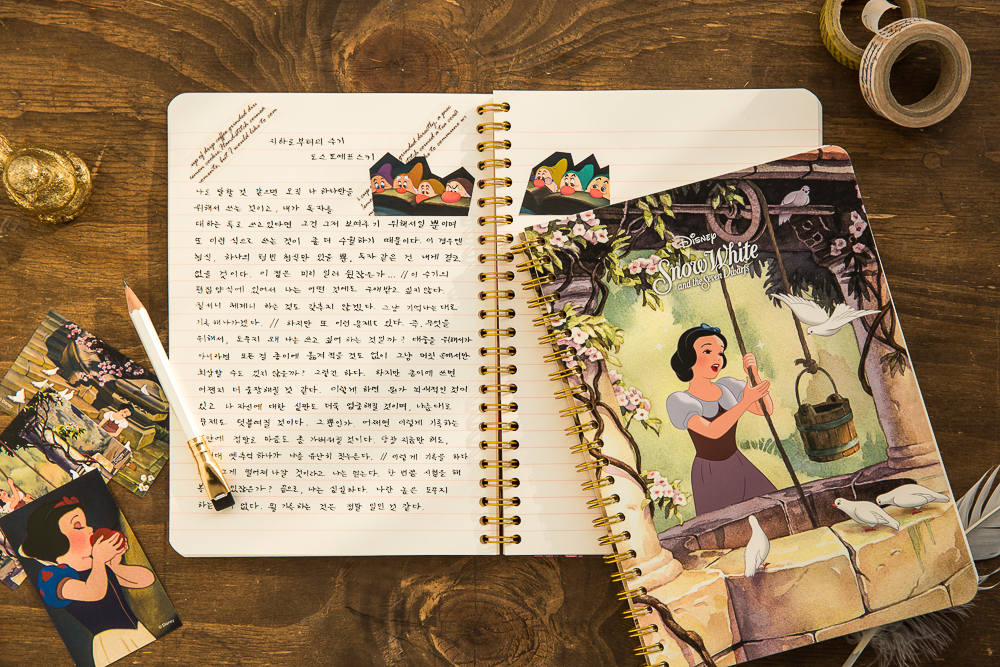 cup of drip coffee grinded dire
지하로부터의 수기
도스토예프스키
나도 말할 것 같으면 오직 나 하나만을
위해서 쓰는 것이고, 내가 독자를
대하는 투로 쓰고있다면 그건 그저 보여주기 위해서일 뿐이며
또 이런 식으로 쓰는 것이 좀 더 수월하기 때문이다. 이 경우엔
형식, 하나의 텅빈 형식만 있을 뿐, 독자 같은 건 내게 결코
없을 것이다. 이 점은 미리 일러 뒀잖은가... // 이 수기의
편집 양식에 있어서 나는 어떤 것에도 구애받고 싶지 않다.
질서니 체계니 하는 것도 갖추지 않겠다. 그냥 기억나는 대로
기록해나가겠다. // 하지만 또 이런 문제도 있다. 즉, 무엇을
위해서, 도무지 왜 나는 쓰고 싶어 하는 것일까? 대중을 위해서가
아니라면 모든 걸 종이에 옮겨 적을 것도 없이 그냥 머릿 에서만
회상할 수도 있지 않을까? 그렇긴 하다. 하지만 종이에 쓰면
어쩐지 더 웅장해질 것 같다. 이렇게 하면 뭔가 뇌쇄적인 것이
있고 나 자신에 대한 심판도 더욱 엄중해질 것이며, 나름대로
문체도 덧붙여질 것이다. 그뿐인가 어쩌면 이렇게 기록하는
안에 정말로 마음도 좀 가벼워질 것이다. 당장 지금만 해도,
옛추억 하나가 나를 유난히 짓누른다. // 이렇게 기록을 하다
떨어져 나갈 것이라고 나는 믿는다. 한 번쯤 시험을 해
않은가? 끝으로, 나는 심심하다. 나란 놈은 도무지
없다. 뭘 기록하는 것은 정말 일인 것 같다.
Disney
Snow White
and the Seven Dwarfs
© Disney